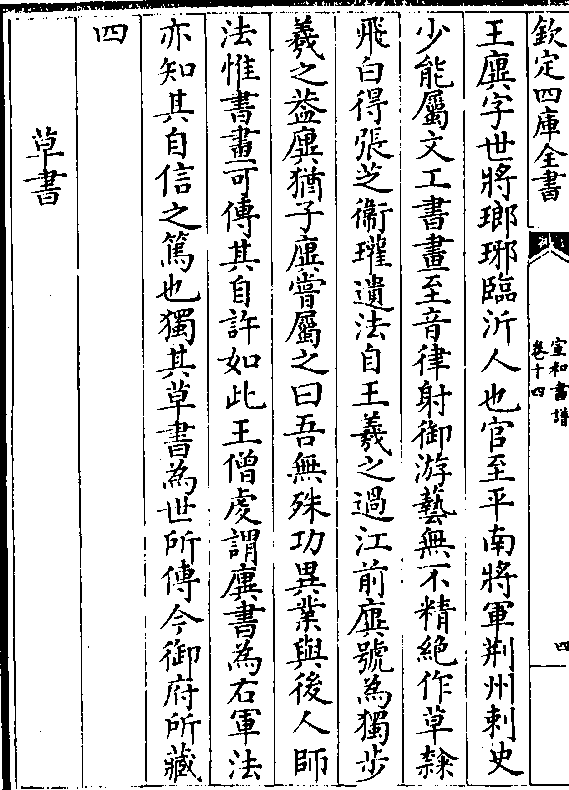 欽定四庫全書
宣和書譜
卷十四
四
王廙字世將瑯琊臨沂人也官至平南將軍荆州刺史
少能屬文工書畫至音律射御游藝無不精絶作草隸
飛白得張芝衞瓘遺法自王羲之過江前廙號為獨步
羲之葢廙猶子廙嘗屬之曰吾無殊功異業與後人師
法惟書畫可傳其自許如此王僧虔謂廙書為右軍法
亦知其自信之篤也獨其草書為世所傳今御府所藏
四
草書